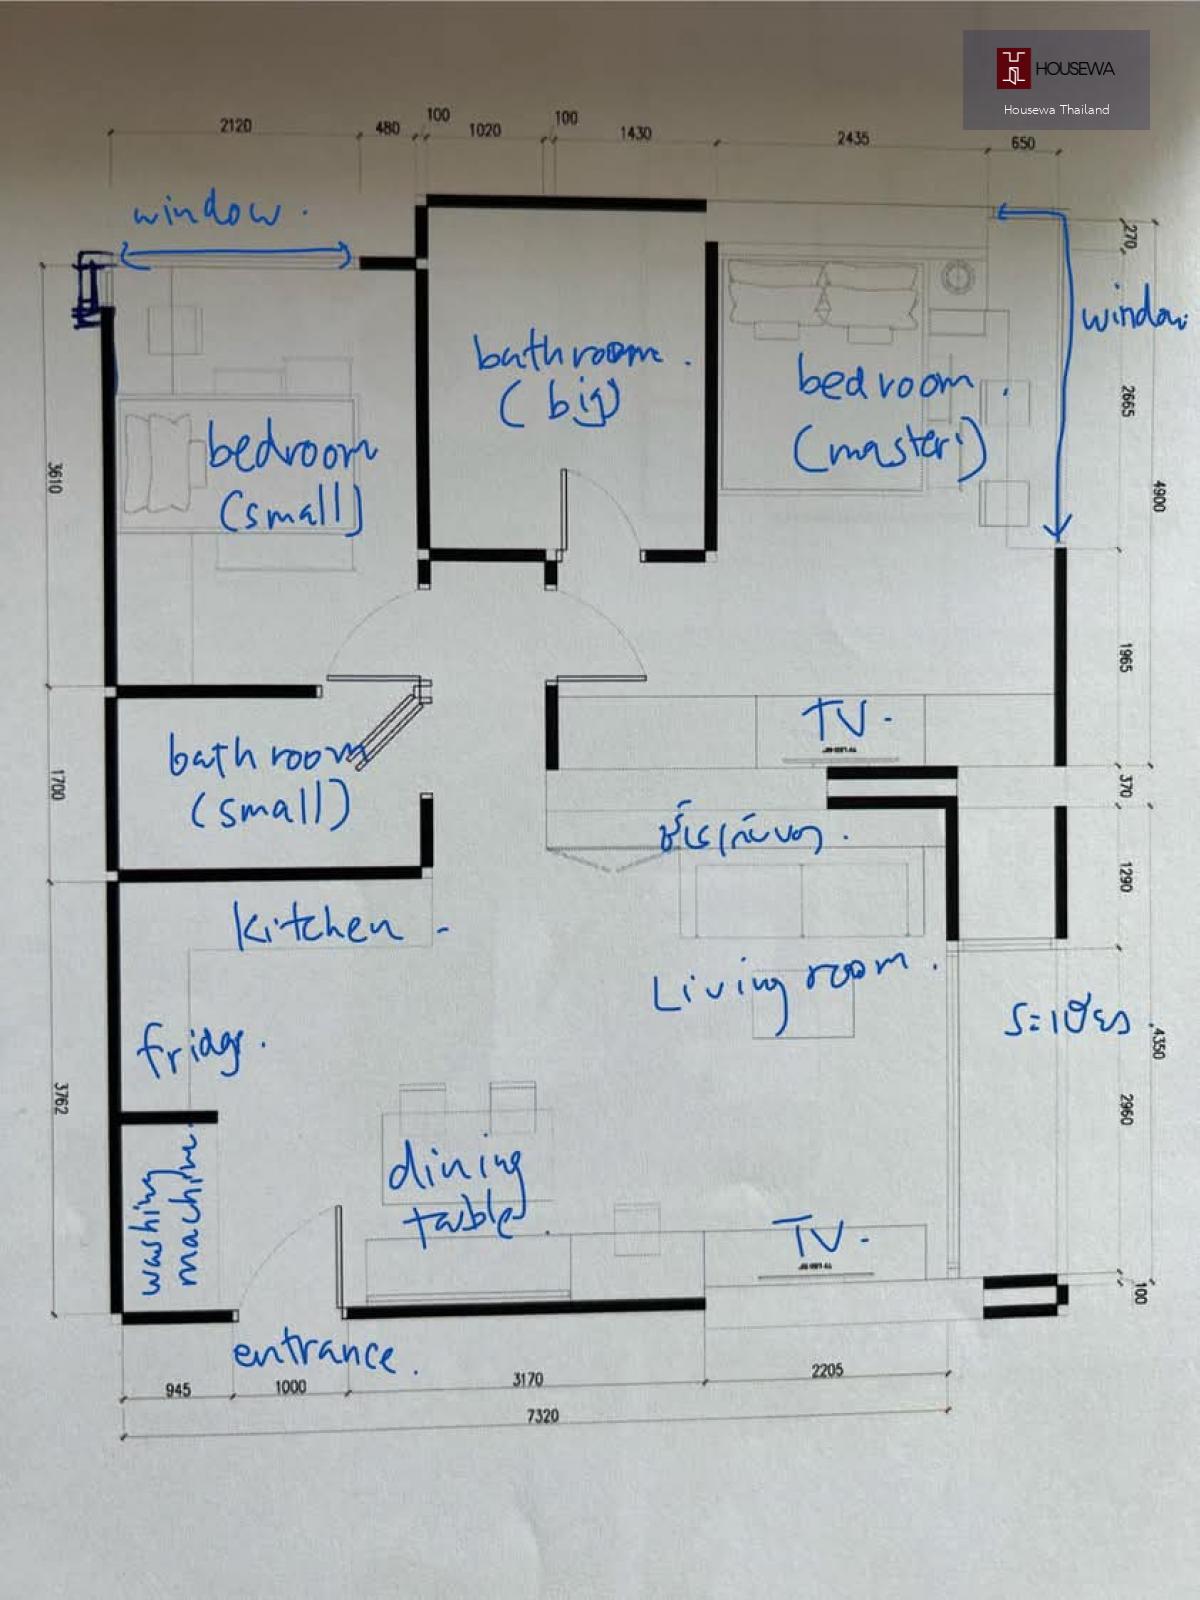 HOUSEWA
Housewa Thailand
2120
480
100
1020
100
1430
2435
650
window.
270
window
bathroom.
(big)
bedroom.
(master)
bedroom
(small)
2665
4900
3610
1965
TV.
bathroom
(small)
1700
370
1290
kitchen
Living room.
ระเบียง
4350
fridge.
3762
2960
dining
table.
washing
machine.
TV.
100
entrance.
945
1000
3170
2205
7320